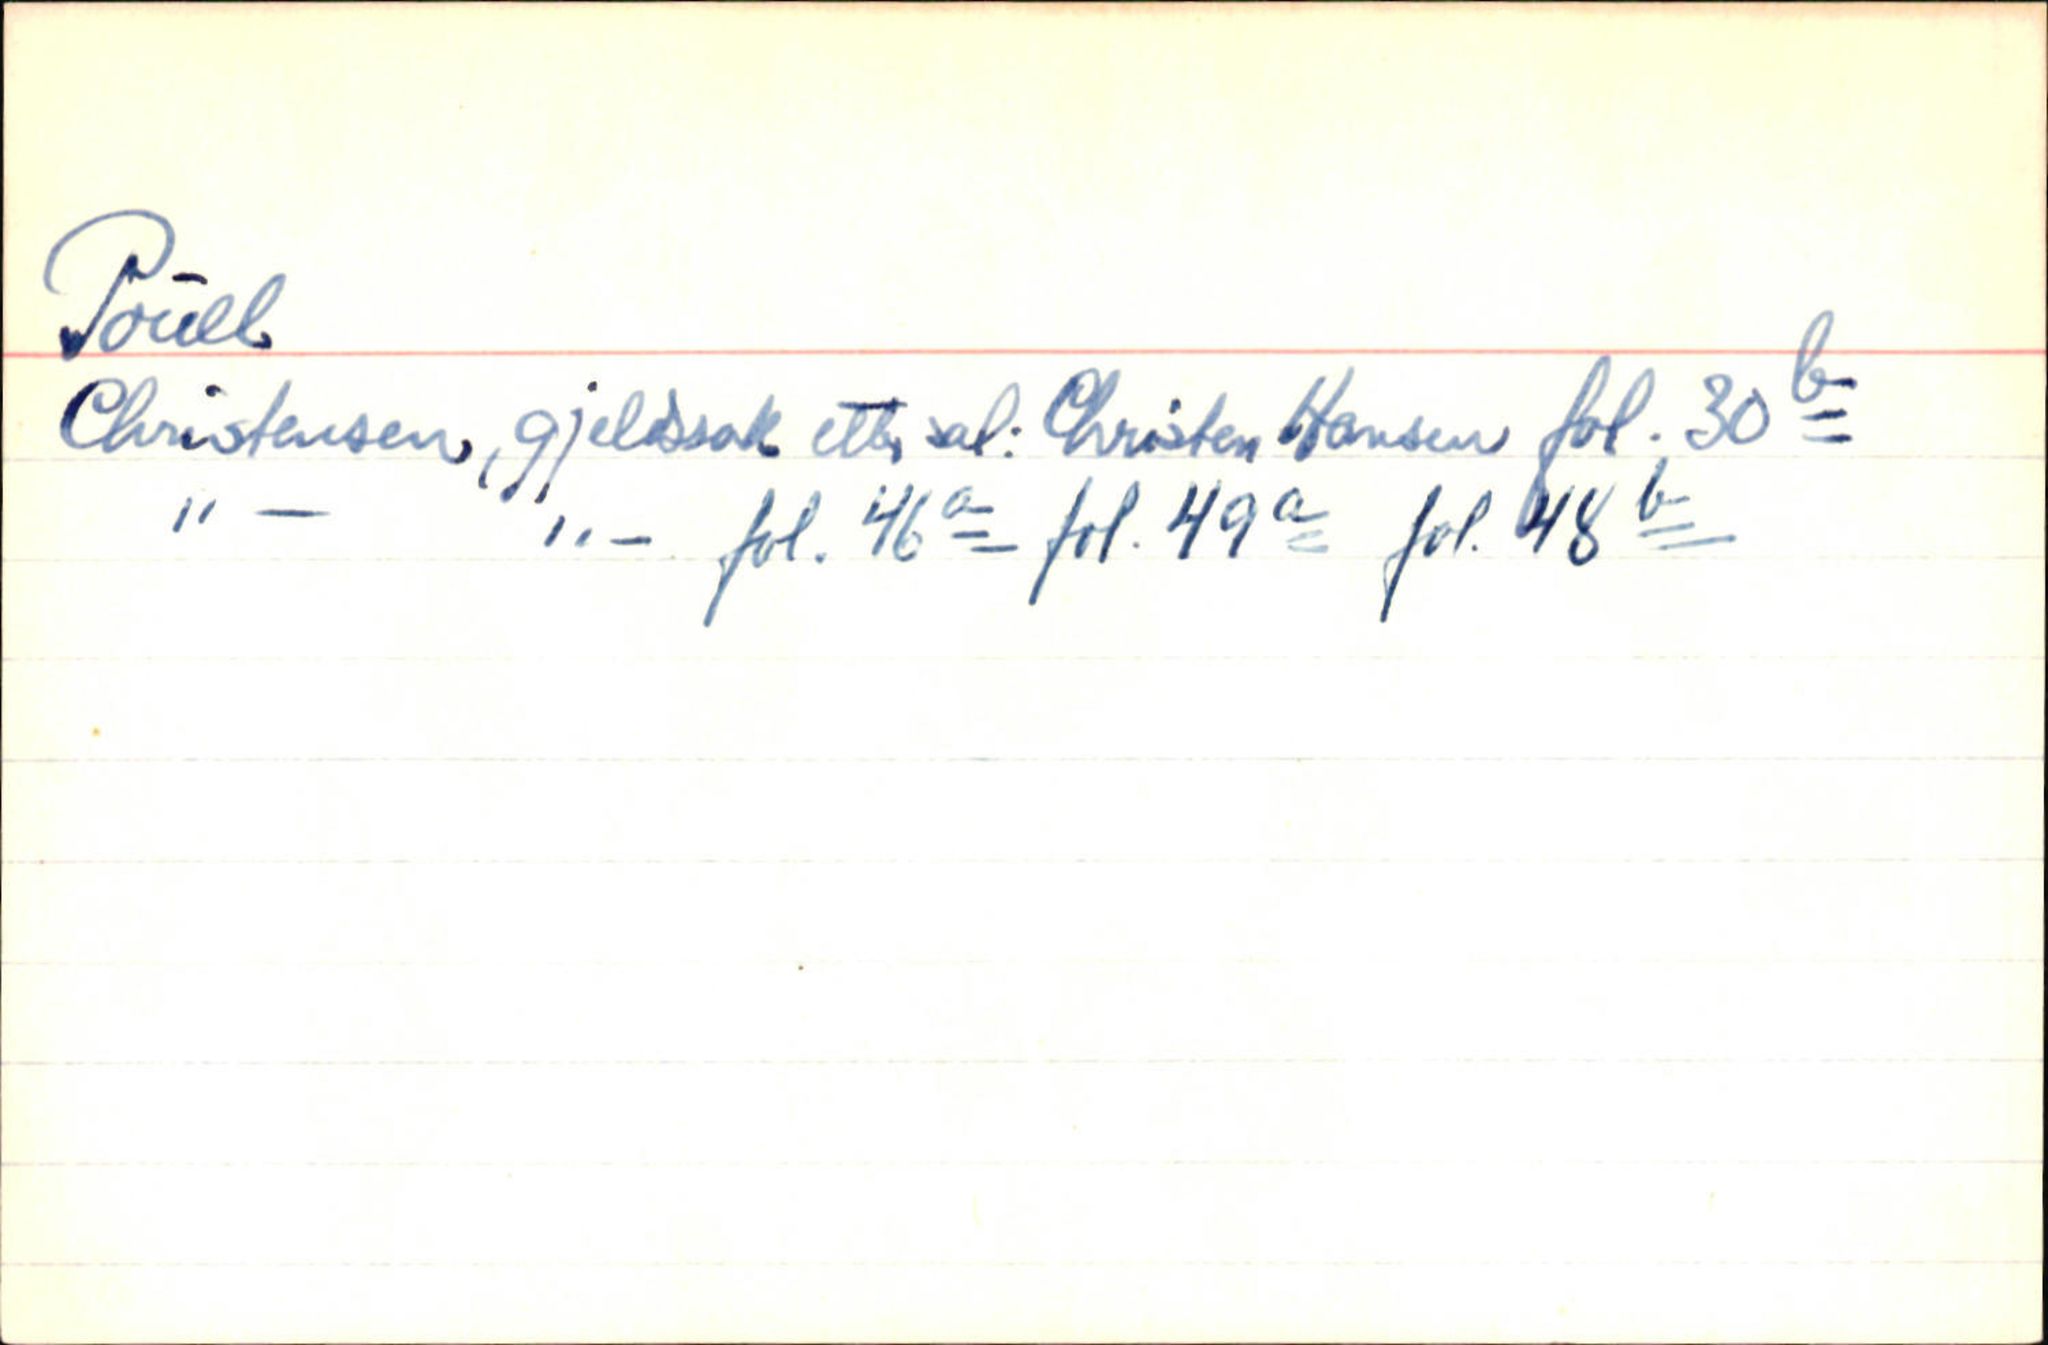 Poūll
Christensen, gjeldssak etter sal: Christen Hansen fol. 30 b
" — " — fol. 46 a fol. 49 a fol. 48 b